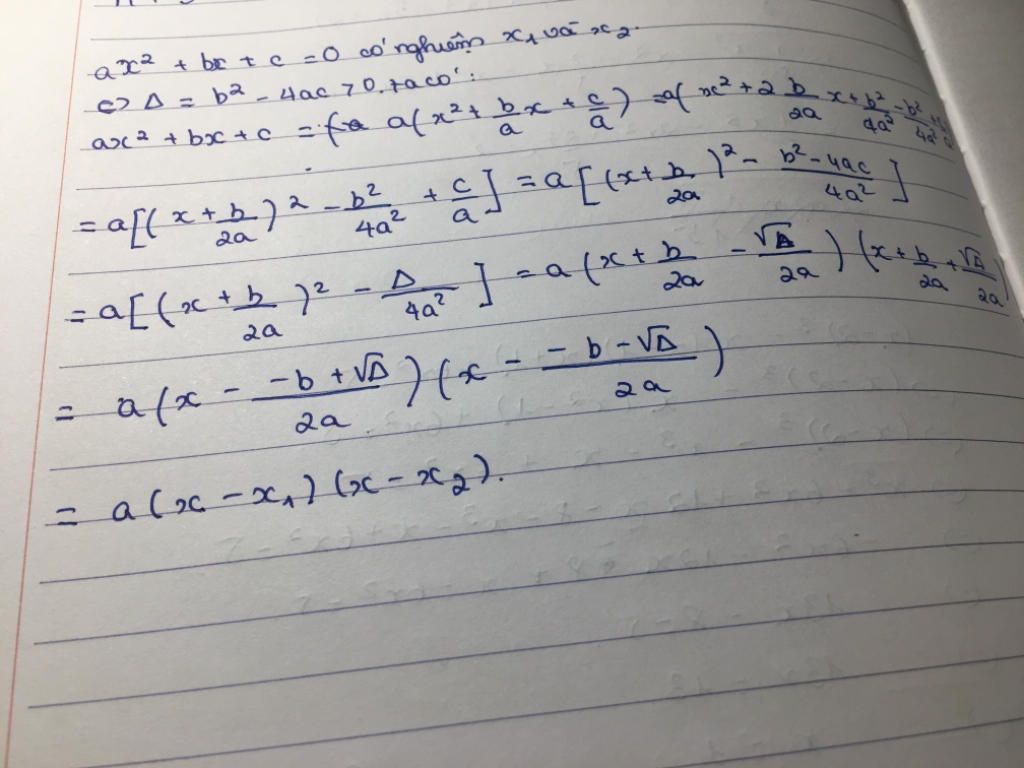 ax² + bx + c = 0 có nghiệm x₁ và x₂.
<=> Δ = b² - 4ac > 0. ta có:
ax² + bx + c = a(x² + b/a x + c/a) = a(x² + 2 b/2a x + b²/4a² - b²/4a² + c/a
= a[(x + b/2a)² - b²/4a² + c/a] = a[(x + b/2a)² - b²-4ac/4a²]
= a[(x + b/2a)² - Δ/4a²] = a(x + b/2a - √Δ/2a)(x + b/2a + √Δ/2a)
= a(x - -b + √Δ/2a)(x - -b - √Δ/2a)
= a(x - x₁)(x - x₂).